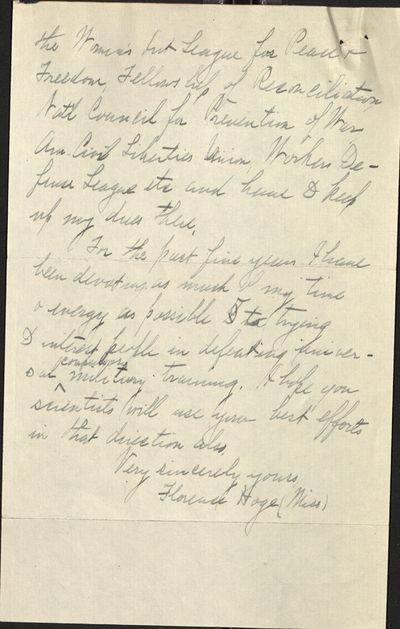 the Women's Int League for Peace &
Freedom, Fellowship of Reconciliation,
Natl Council for Prevention of War
Am Civil Liberties Union, Workers De-
fense League etc and have to keep
up my dues there.
For the past five years I have
been devoting as much of my time
& energy as possible to trying
to interest people in defeating univer-
sal compulsory military training. I hope you
scientists will use your best efforts
in that direction also.
Very sincerely yours,
Florence Hoge (Miss)